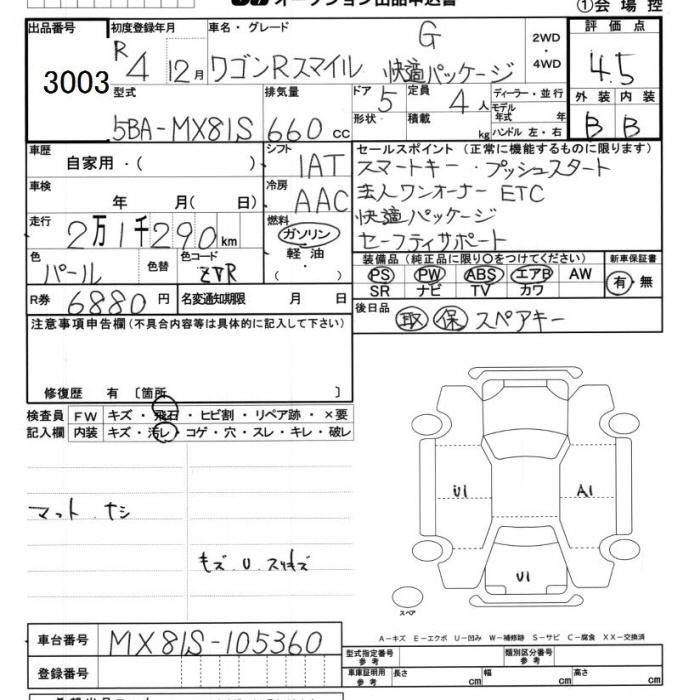 オークション出品申込書 ①会場控
出品番号 初度登録年月 車名・グレード 評価点
3003 R4 12月 ワゴンRスマイル G 快適パッケージ 2WD・4WD 4.5
型式 排気量 ドア 5 定員 4人 ディーラー・並行 外装 内装
5BA-MX81S 660cc 形状 積載 kg モデル年式 年 ハンドル 左・右 B B
車歴 自家用・( ) シフト 1AT セールスポイント(正常に機能するものに限ります)
スマートキー・プッシュスタート
車検 年 月( 日) 冷房 AAC 法人ワンオーナー ETC
走行 2万1千290km 燃料 ガソリン 快適パッケージ
軽油 セーフティサポート
・( )
色 パール 色替 色コード ZVR 装備品(純正品に限り○をつけてください) 新車保証書
PS PW ABS エアB AW 有・無
SR ナビ TV カワ
R券 6880円 名変通知期限 月 日 後日品 取 保 スペアキー
注意事項申告欄(不具合内容等は具体的に記入して下さい)
修復歴 有 〔箇所 〕
検査員 FW キズ・飛石・ヒビ割・リペア跡・×要
記入欄 内装 キズ・汚レ・コゲ・穴・スレ・キレ・破レ
U1 A1
マット ナシ
キズ.U.スリキズ
U1
スペア
A-キズ E-エクボ U-凹み W-補修跡 S-サビ C-腐食 XX-交換済
車台番号 MX81S-105360
型式指定番号 参考 類別区分番号 参考
登録番号 車庫証明用 参考 長さ cm 幅 cm 高さ cm